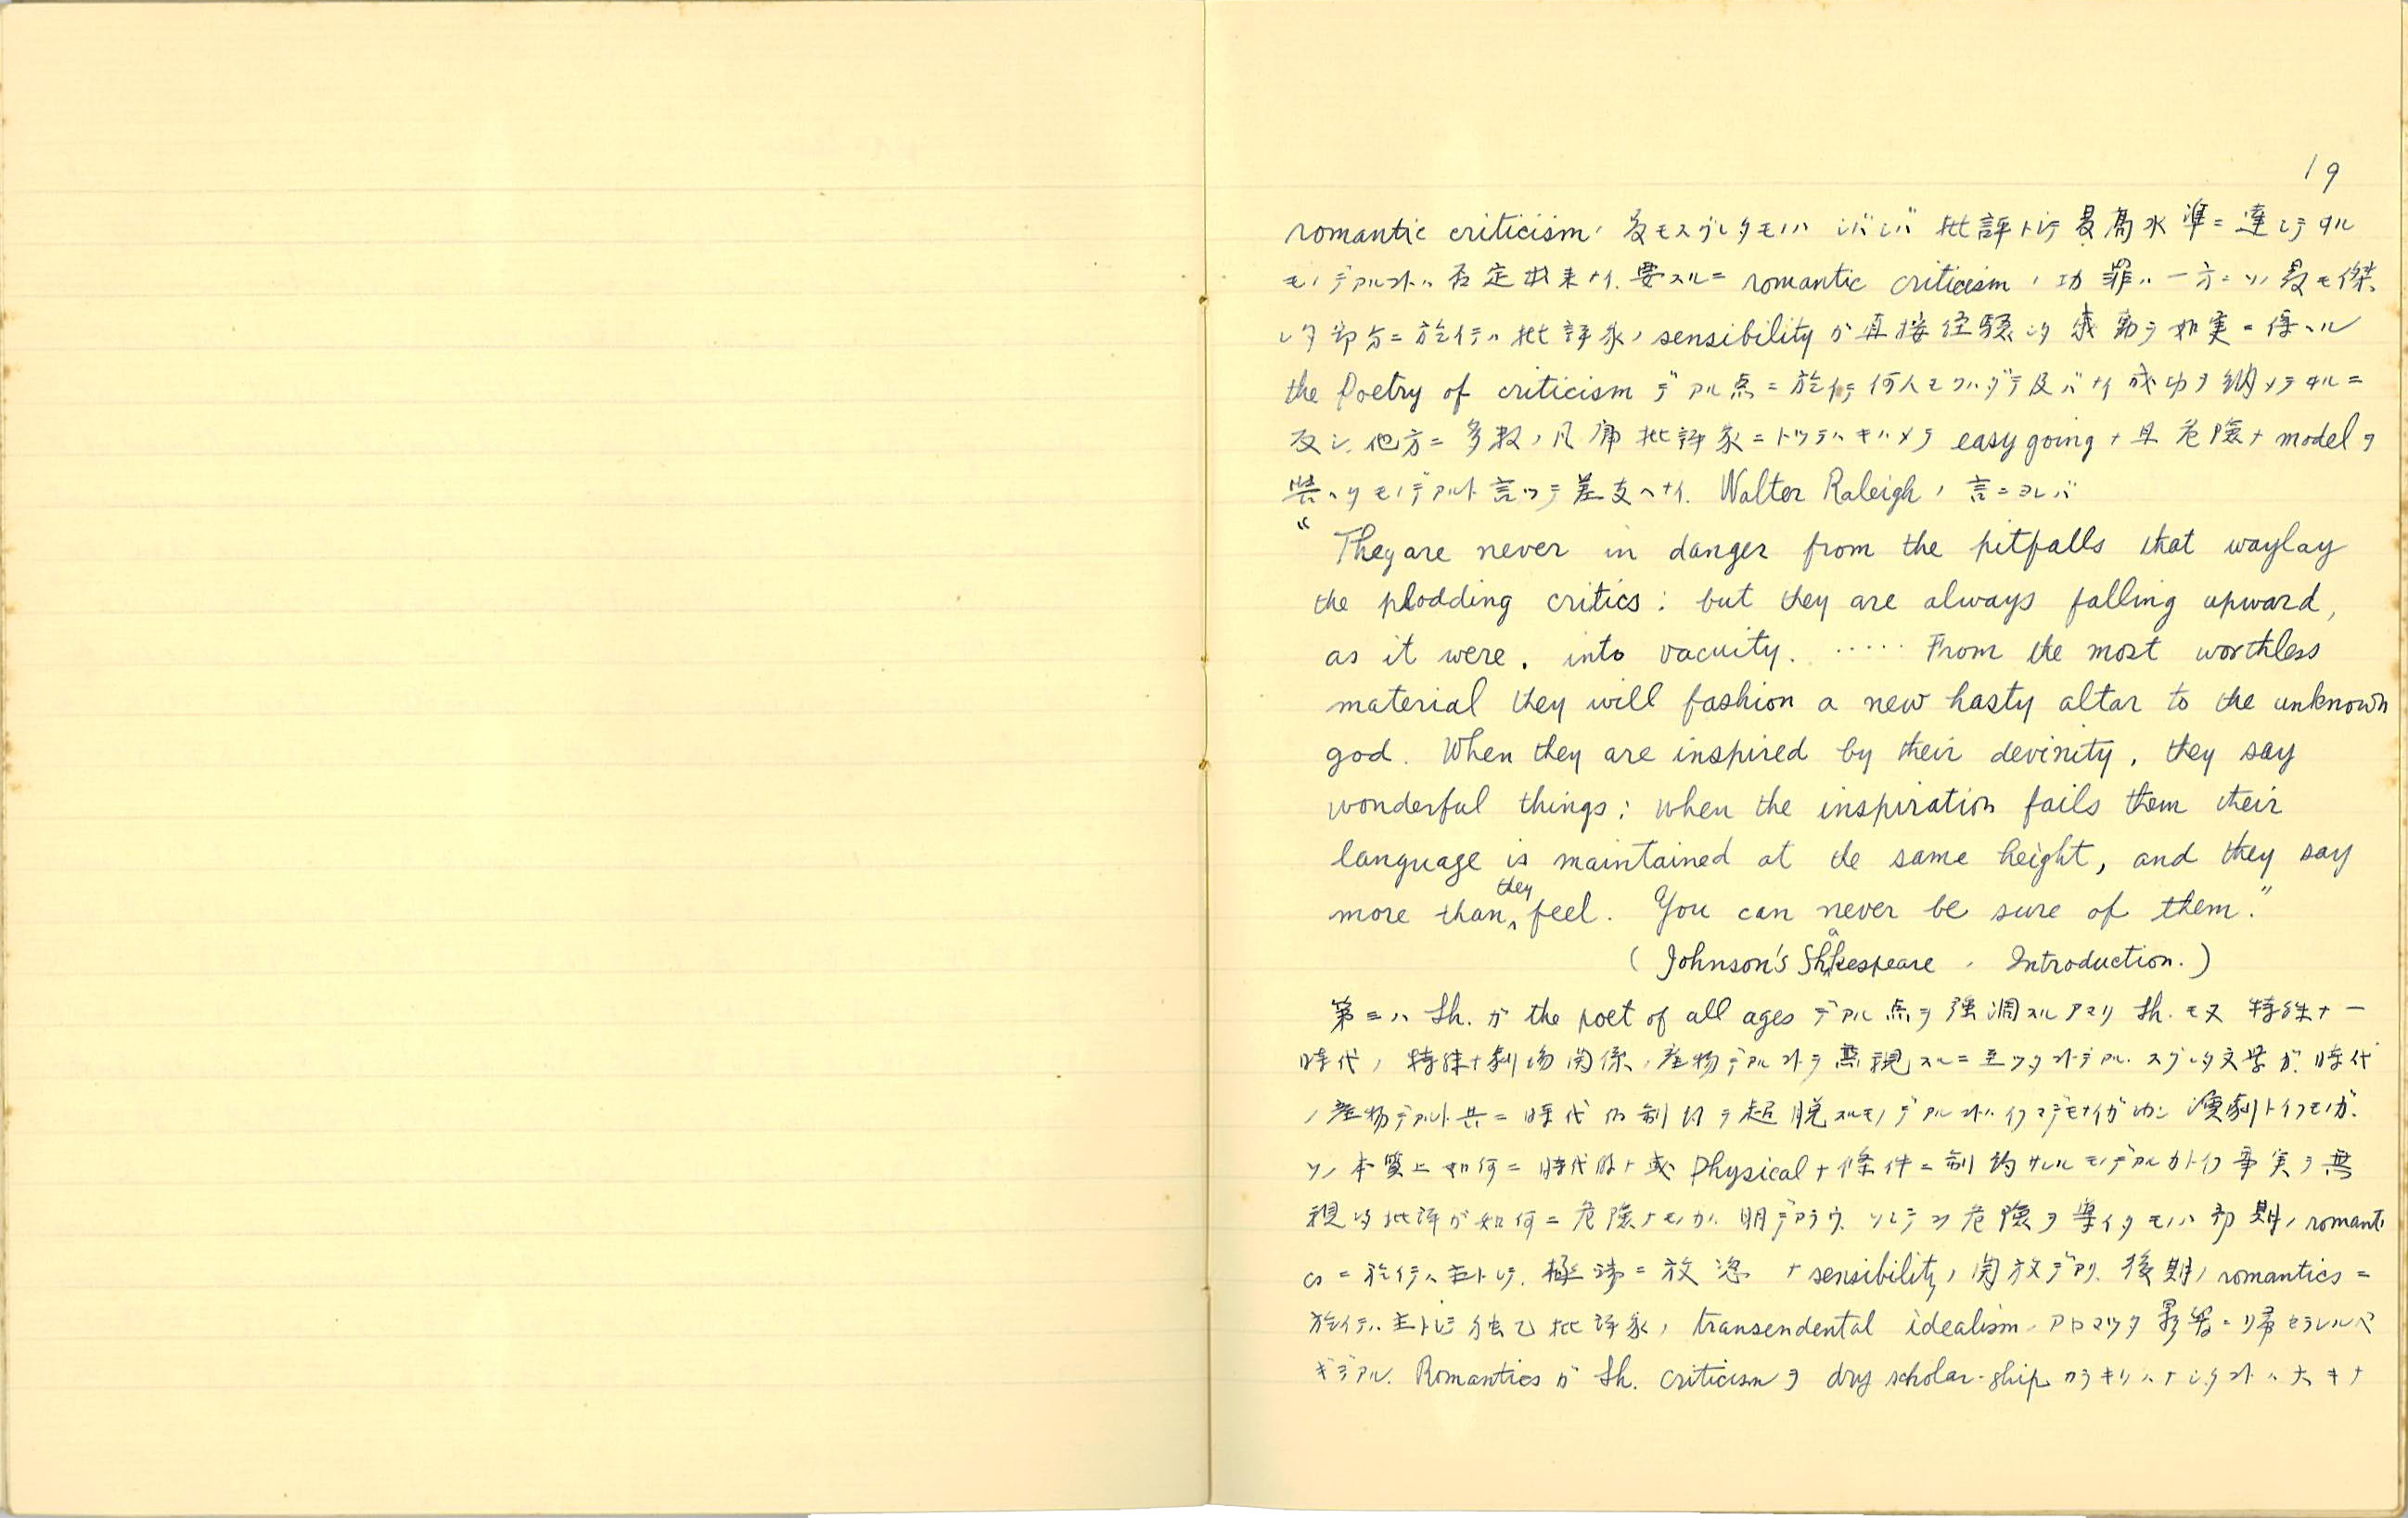 19
romantic criticism ノ 最モスグレタモノハ シバシバ 批評トシテ最高水準ニ達シテヰル
モノデアルコトハ否定出来ナイ. 要スルニ romantic criticism ノ功罪ハ一方ニソノ最モ傑
レタ部分ニ於イテハ批評家ノ sensibility ガ直接経験シタ感動ヲ如実ニ伝ヘル
the Poetry of criticism デアル点ニ於イテ何人モクハダテ及バナイ成功ヲ納メテヰルニ
反シ, 他方ニ多数ノ凡庸批評家ニトツテハキハメテ easy going ナ且危険ナ model ヲ
与ヘタモノデアルト言ツテ差支ヘナイ. Walter Raleigh ノ言ニヨレバ
“They are never in danger from the pitfalls that waylay
the plodding critics: but they are always falling upward,
as it were, into vacuity. ..... From the most worthless
material they will fashion a new hasty altar to the unknown
god. When they are inspired by their devinity, they say
wonderful things; when the inspiration fails them their
language is maintained at the same height, and they say
more than they feel. You can never be sure of them.”
(Johnson's Shakespeare, Introduction.)
第三ハ Sh. ガ the poet of all ages デアル点ヲ強調スルアマリ Sh. モ又特殊ナ一
時代ノ特殊ナ劇場関係ノ産物デアルコトヲ無視スルニ至ツタコトデアル. スグレタ文学ガ時代
ノ産物デアルト共ニ時代的制約ヲ超脱スルモノデアルコトハイフマデモナイガ 演劇トイフモノガ.
ソノ本質上如何ニ時代的ナ或ハ physical ナ條件ニ制約サレルモノデアルカトイフ事実ヲ無
視シタ批評ガ如何ニ危険ナモノカハ明デアラウ. ソシテコノ危険ヲ導イタモノハ初期ノ romanti
cs ニ於イテハ主トシテ, 極端ニ放恣ナ sensibility ノ開放デアリ. 後期ノ romantics ニ
於イテハ主トシテ独乙批評家ノ transendental idealism ノアヤマツタ影響ニ帰セラレルベ
キデアル. Romantics ガ Sh. criticism ヲ dry scholar-ship カラキリハナシタコトハ大キナ